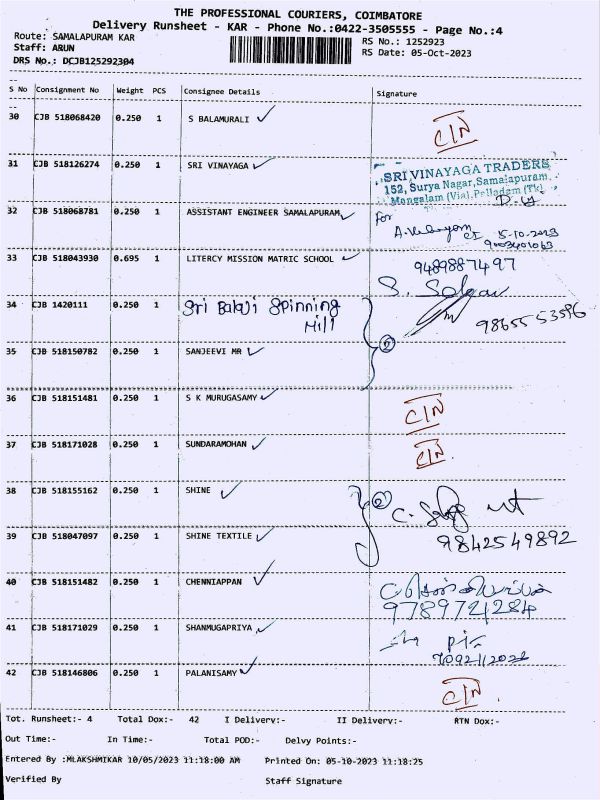 THE PROFESSIONAL COURIERS, COIMBATORE
Delivery Runsheet - KAR - Phone No.:0422-3505555 - Page No.:4
Route: SAMALAPURAM KAR
RS No.: 1252923
Staff: ARUN
RS Date: 05-Oct-2023
DRS No.: DCJB125292304
S No Consignment No Weight PCS Consignee Details Signature
30 CJB 518068420 0.250 1 S BALAMURALI
31 CJB 518126274 0.250 1 SRI VINAYAGA
SRI VINAYAGA TRADERS
152, Surya Nagar, Samalapuram.
Mangalam (Via), Palladam (Tk)
32 CJB 518068781 0.250 1 ASSISTANT ENGINEER SAMALAPURAM
for
5-10-2023
33 CJB 518043930 0.695 1 LITERCY MISSION MATRIC SCHOOL
9489887497
34 CJB 1420111 0.250 1 Sri Balaji Spinning
Mill
35 CJB 518150782 0.250 1 SANJEEVI MR
5
36 CJB 518151481 0.250 1 S K MURUGASAMY
37 CJB 518171028 0.250 1 SUNDARAMOHAN
38 CJB 518155162 0.250 1 SHINE
2
39 CJB 518047097 0.250 1 SHINE TEXTILE
9842549892
40 CJB 518151482 0.250 1 CHENNIAPPAN
9789721284
41 CJB 518171029 0.250 1 SHANMUGAPRIYA
42 CJB 518146806 0.250 1 PALANISAMY
Tot. Runsheet:- 4 Total Dox:- 42 I Delivery:- II Delivery:- RTN Dox:-
Out Time:- In Time:- Total POD:- Delvy Points:-
Entered By :MLAKSHMIKAR 10/05/2023 11:18:00 AM Printed On: 05-10-2023 11:18:25
Verified By Staff Signature